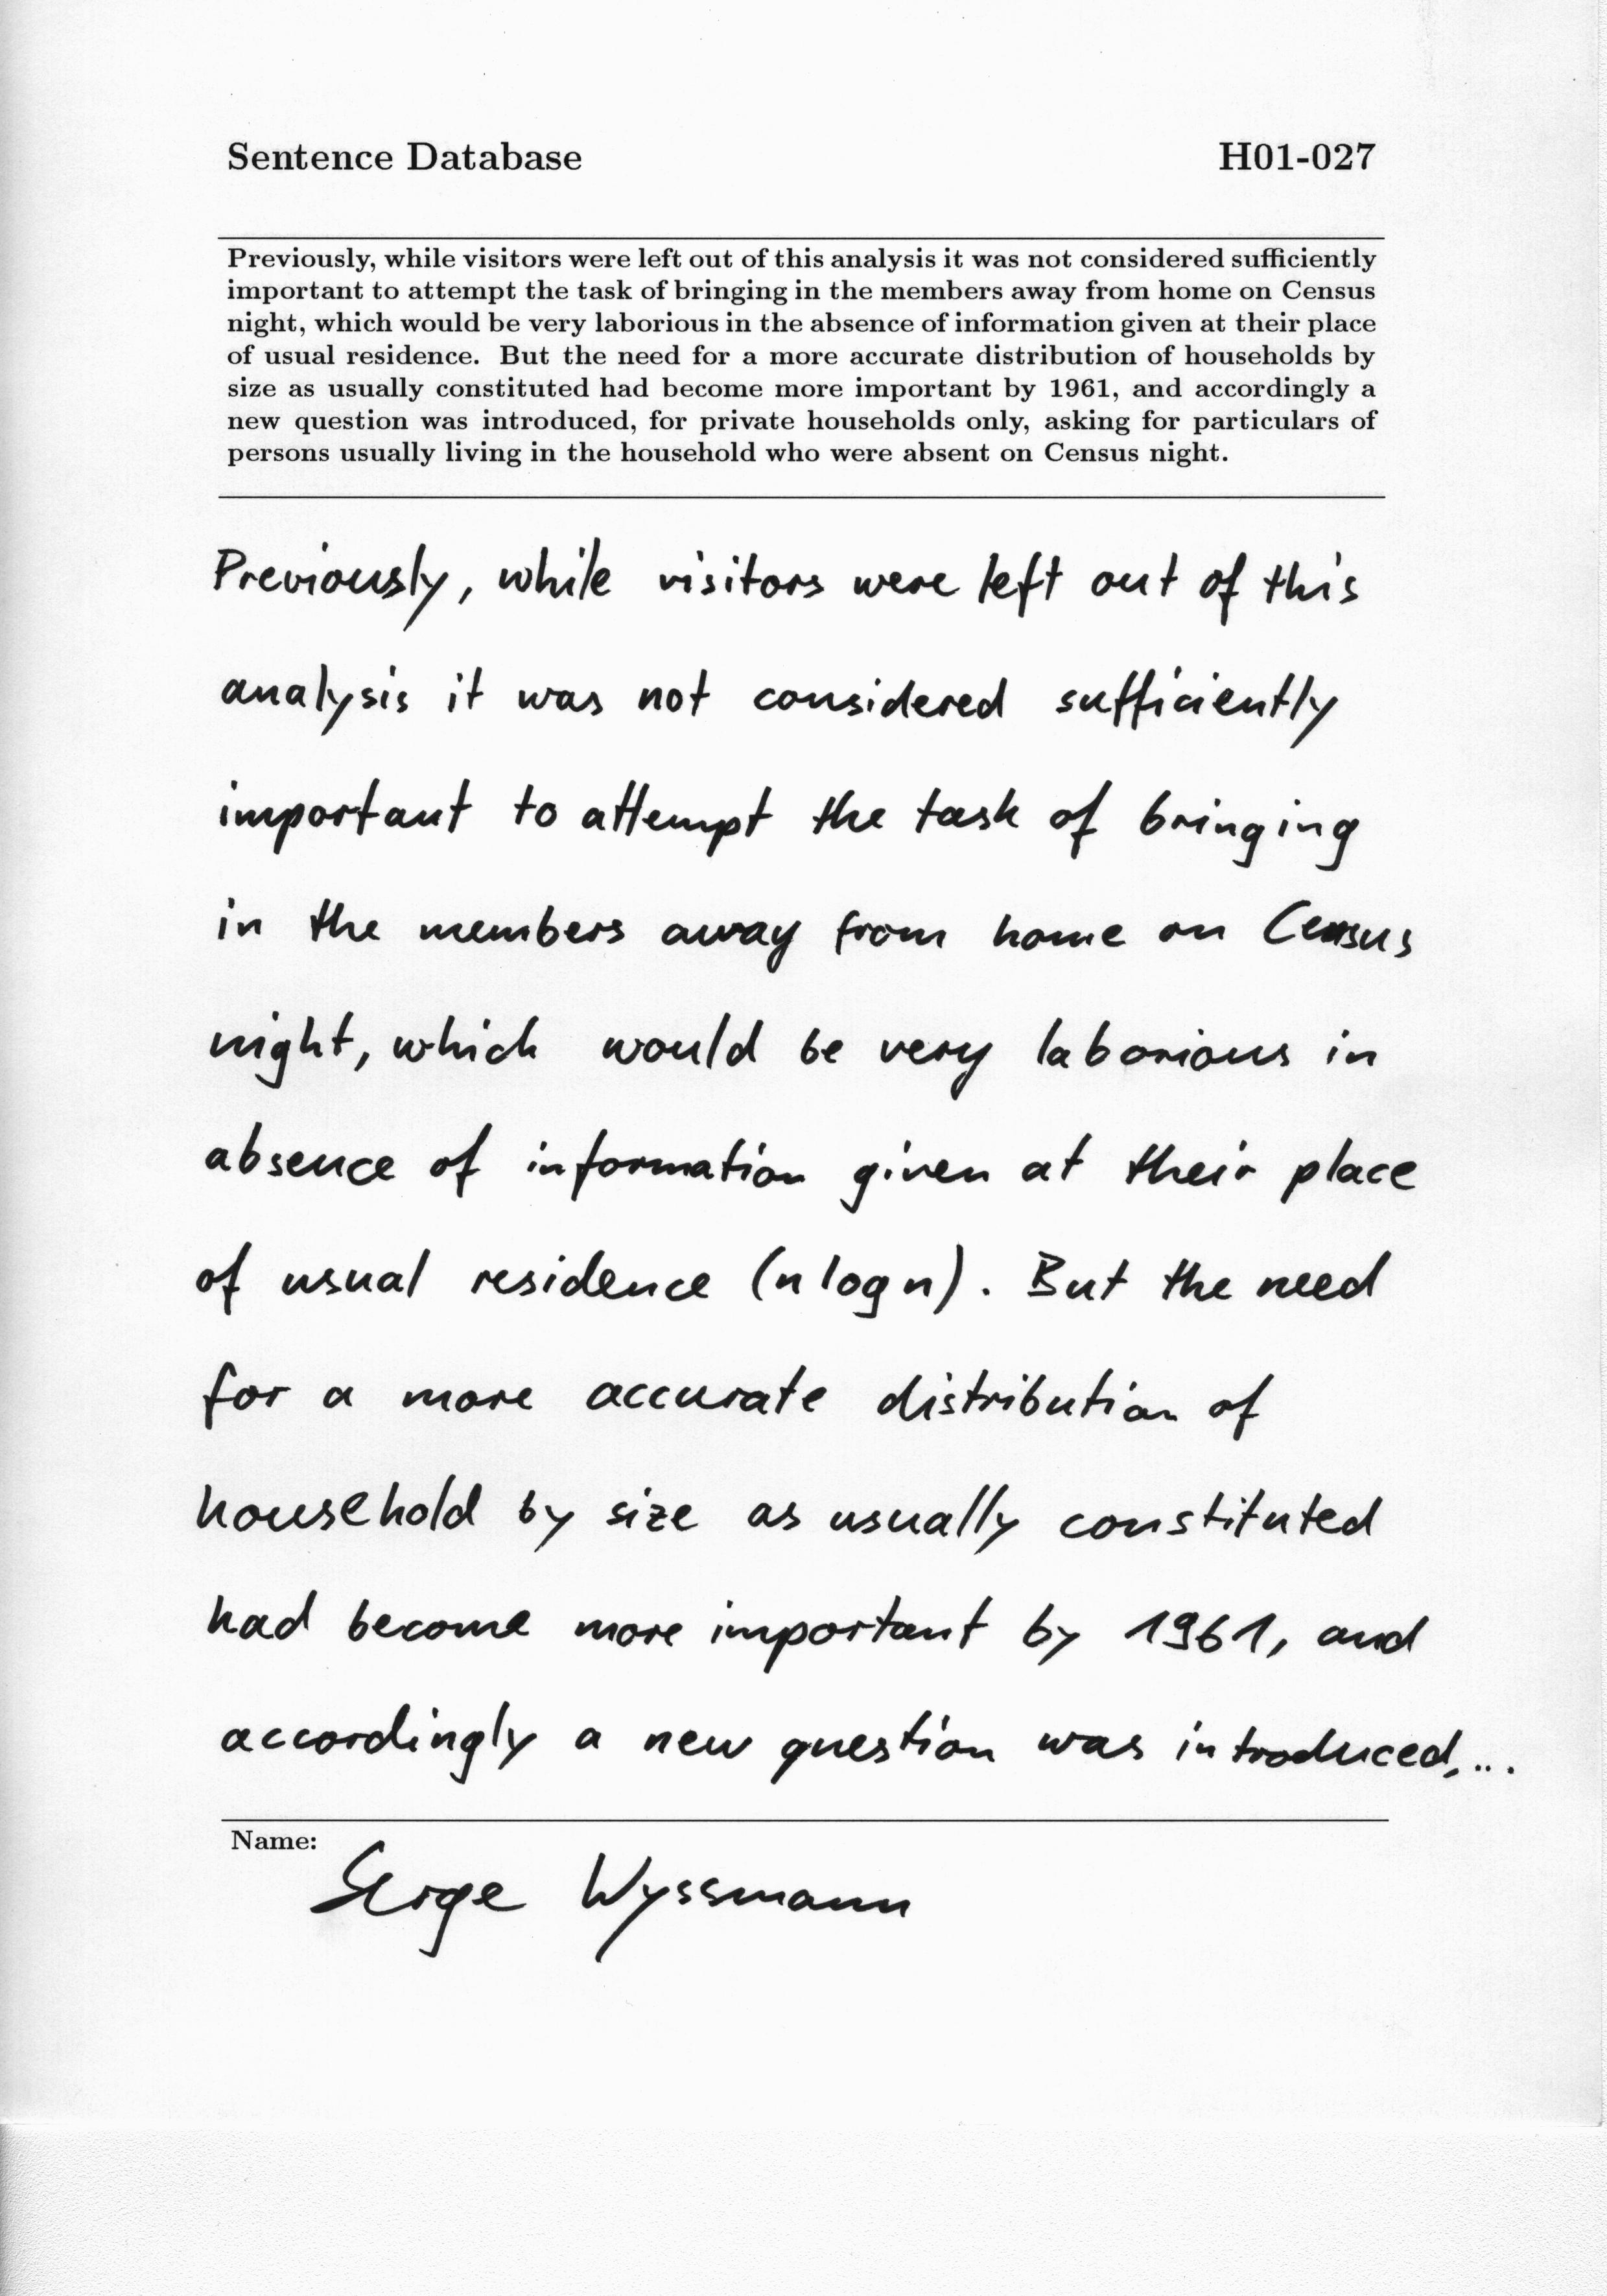 Sentence Database H01-027
Previously, while visitors were left out of this analysis it was not considered sufficiently
important to attempt the task of bringing in the members away from home on Census
night, which would be very laborious in the absence of information given at their place
of usual residence. But the need for a more accurate distribution of households by
size as usually constituted had become more important by 1961, and accordingly a
new question was introduced, for private households only, asking for particulars of
persons usually living in the household who were absent on Census night.
Previously, while visitors were left out of this
analysis it was not considered sufficiently
important to attempt the task of bringing
in the members away from home on Census
night, which would be very laborious in
absence of information given at their place
of usual residence (n log n). But the need
for a more accurate distribution of
household by size as usually constituted
had become more important by 1961, and
accordingly a new question was introduced,...
Name:
Serge Wyssmann